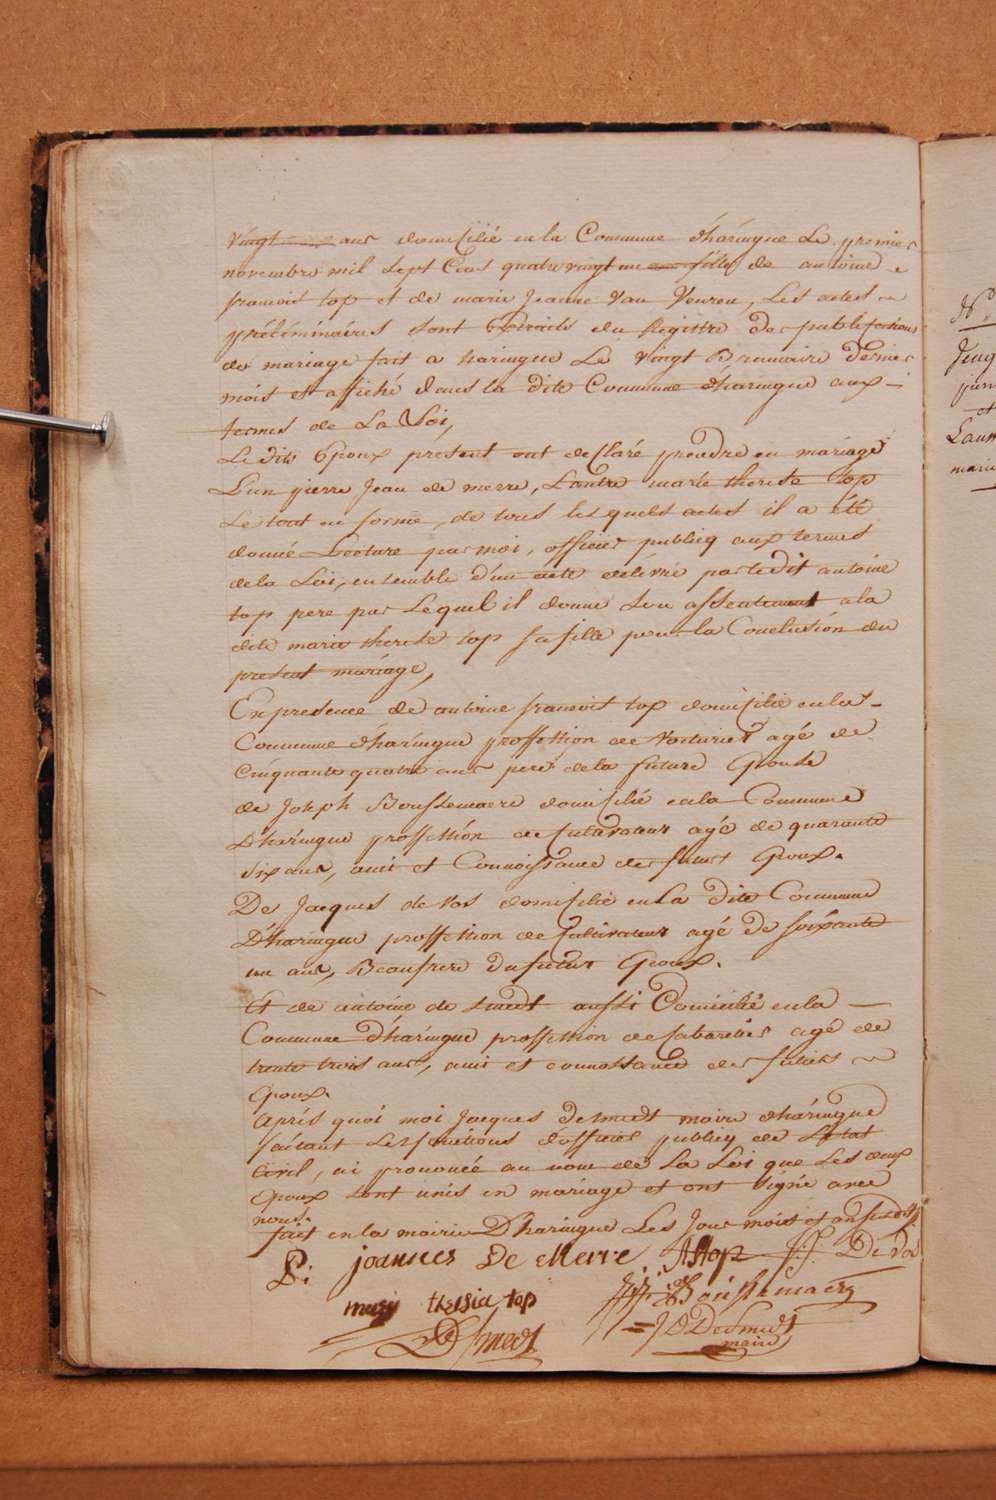 vingt ans domicilié en la Commune d'haringue Le premier
novembre mil sept Cens quatre vingt un fille de antoine
francois top et de marie Jeanne Van Veuren, Les actes
préléminaires sont Extraits du Registre des publications
de mariage fait a haringue Le Vingt Brumaire dernier
mois et affiché dans la dite Commune d'haringue aux
termes de La Loi,
Le dits Epoux present ont desclaré prendre en mariage
L'un pierre Jean de merre, L'autre marie therese top
Le tout en forme, de tous lesquels actes il a été
donné Lecture par moi, officier publicq aux termes
de la Loi, ensemble d'un acte délivré par ledit antoine
top pere par Lequel il donne son assentement a la
dite marie therese top sa fille pour la Conclusion du
present mariage,
En presence de antoine francois top domicilié en la
Commune d'haringue proffession de Voiturier agé de
Cinquante quatre ans pere de la future Epouse
de Joseph Boussemaere domicilié en la Commune
D'haringue proffession de Cultivateur agé de quarante
six ans, ami et Connoissance des futurs Epoux.
De Jacques de Vos domicilié en La dite Commune
D'haringue proffession de Cultivateur agé de soixante
un ans, Beaufrere du futur Epoux.
Et de antoine de smedt aussi Domicilié en la
Commune d'haringue proffession de Cabaretier agé de
trente trois ans, ami et connoissance des futurs
Epoux.
après quoi moi Jacques Desmedt maire d'haringue
faisant Les fonctions d'officier publicq de L'etat
Civil, ai prononcée au nom de La Loi que Les deux
Epoux sont unis en mariage et ont signé avec
nous.
fait en la mairie D'haringue Les Jour mois et an susdits
P: joannes De Merre AFtop J: De Vos
marij thersia top Boussemaere
AD Smedt J D Desmedt
maire
N°
Laur
marie